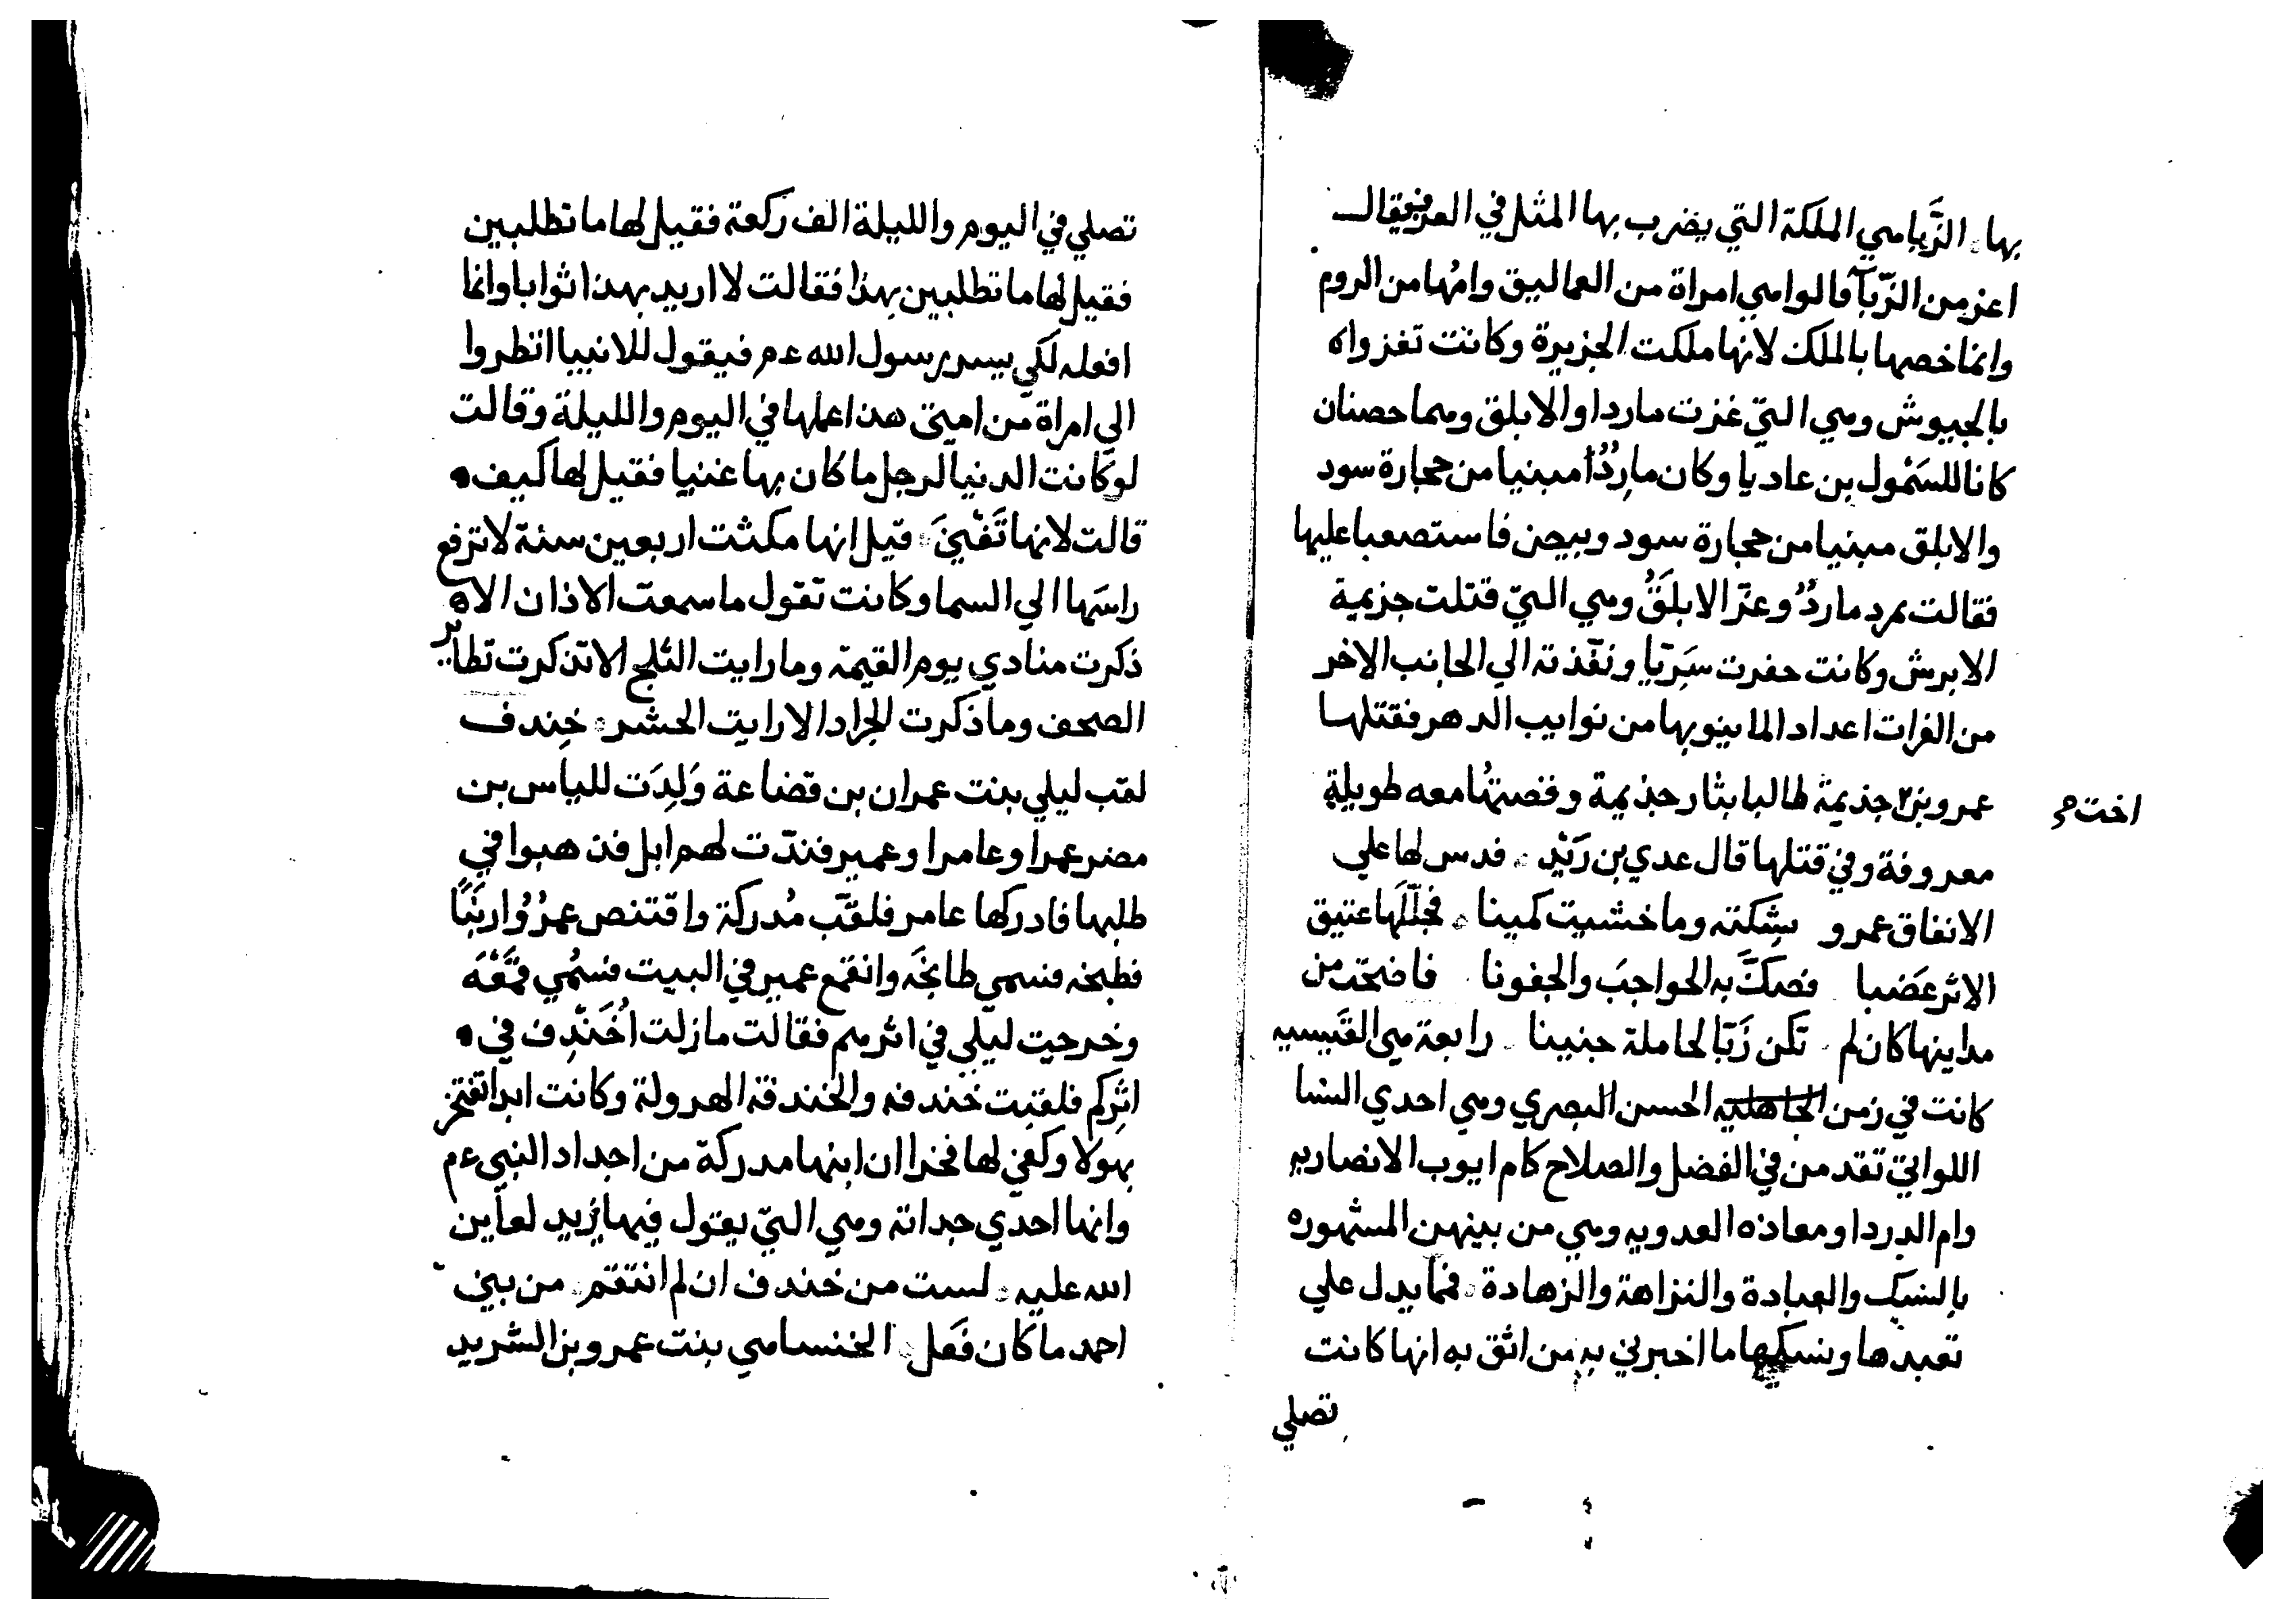 بها. الزَّبا هي الملكة التي يضرب بها المثل في العز فيقال
اعز من الزّبآ قالوا هي امراة من العماليق وامّها من الروم
وانما خصها بالملك لانها ملكت الجزيرة وكانت تغزواه
بالجيوش وهي التي غزت ماردا والابلق وهما حصنان
كانا للسَمَوْل بن عاديا وكان ماردُ مبنيا من حجارة سود
والابلق مبنيا من حجارة سود وبيض فاستصعبا عليها
فقالت تمرد ماردُ وعزّ الابلَقُ وهي التي قتلت جزيمة
الابرش وكانت حفرت سَرَبا ونفّذته الي الجانب الاخر
من الفرات اعدادا لما ينوبها من نوايب الدهر فقتلها
عمرو بن جذيمة طالبا بثار جذيمة وقصتها معه طويلة
اخت
معروفة وفي قتلها قال عدي بن زَيْد. فدس لها علي
الانفاق عمرو بشِكته وما خشيت كمينا. فجلّلَها عتيق
الاثر عَضبا فصكّ به الحواجبَ والجفونا فاضحت من
مداينها كان لم تكن زَبّا لحاملة جنينا. رابعة هي القَيسيه
كانت في زمن الجاهليه الحسن البصري وهي احدي النسا
اللواتي تقدمن في الفضل والصلاح كام ايوب الانصاريه
وام الدردا ومعاذه العدويه وهي من بينهن المشهوره
بالنسك والعبادة والنزاهة والزهادة. فمما يدل علي
تعبدها ونسكها ما اخبرني به من اثق به انها كانت
تصلي
تصلي في اليوم والليلة الف ركعة فقيل لها ما تطلبين
فقيل لها ما تطلبين بهذا فقالت لا اريد بهذا ثوابا وانما
افعله لكي يسر رسول الله عم فيقول للانبيا انظروا
الي امراة من امتي هذا عملها في اليوم والليلة وقالت
لو كانت الدنيا لرجل ما كان بها غنيا فقيل لها كيف
قالت لانها تَفْنيَ. قيل انها مكثت اربعين سنة لا ترفع
راسَها الي السما وكانت تقول ما سمعت الاذان الا
ذكرت منادي يوم القيمة وما رايت الثلج الا تذكرت تطاير
الصحف وما ذكرت الجراد الا رايت الحشر. خِندف
لقب ليلي بنت عمران بن قضاعة وَلِدَت للياس بن
مضر عمرا وعامرا وعمير فندّت لهم ابل فذهبوا في
طلبها فادركها عامر فلقّب مُدركة واقتنص عمرُو ارنَبًا
فطبخه فسمي طابخَه وانقمع عمير في البيت فسُمي قمَعْه
وخرجت ليلي في اثرهم فقالت ما زلت اُخَنْدِف في
اثرِكم فلقبت خندفه والخندقة الهرولة وكانت ابدا تفتخر
بهولا وكفي لها فخرا ان ابنها مدركة من اجداد النبي عم
وانها احدي جداته وهي التي يقول فيها يزيد لعاين
الله عليه. لست من خندف ان لم انتقم. من بني
احمد ما كان فَعَل. الخنسا هي بنت عمرو بن الشريد